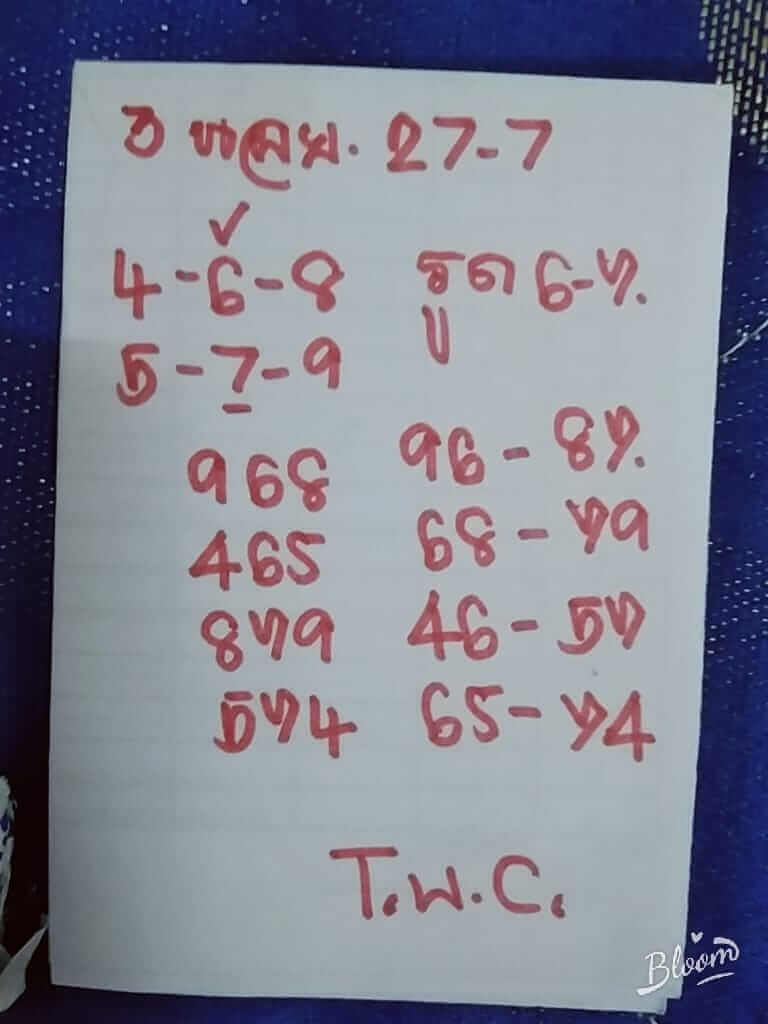 27-7
4-6-8 รูด 6-7.
5-7-9
968 96-87.
465 68-79
879 46-57
574 65-74
T.W.C.
Bloom